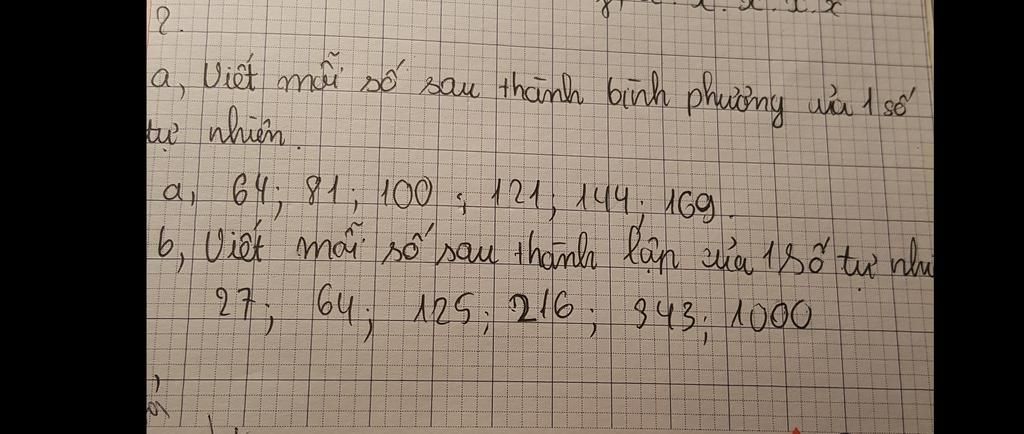 2.
a, Viết mỗi số sau thành bình phương của 1 số
tự nhiên.
a, 64; 81; 100; 121; 144; 169.
b, Viết mỗi số sau thành lập của 1 số tự nhi
27; 64; 125; 216; 343; 1000